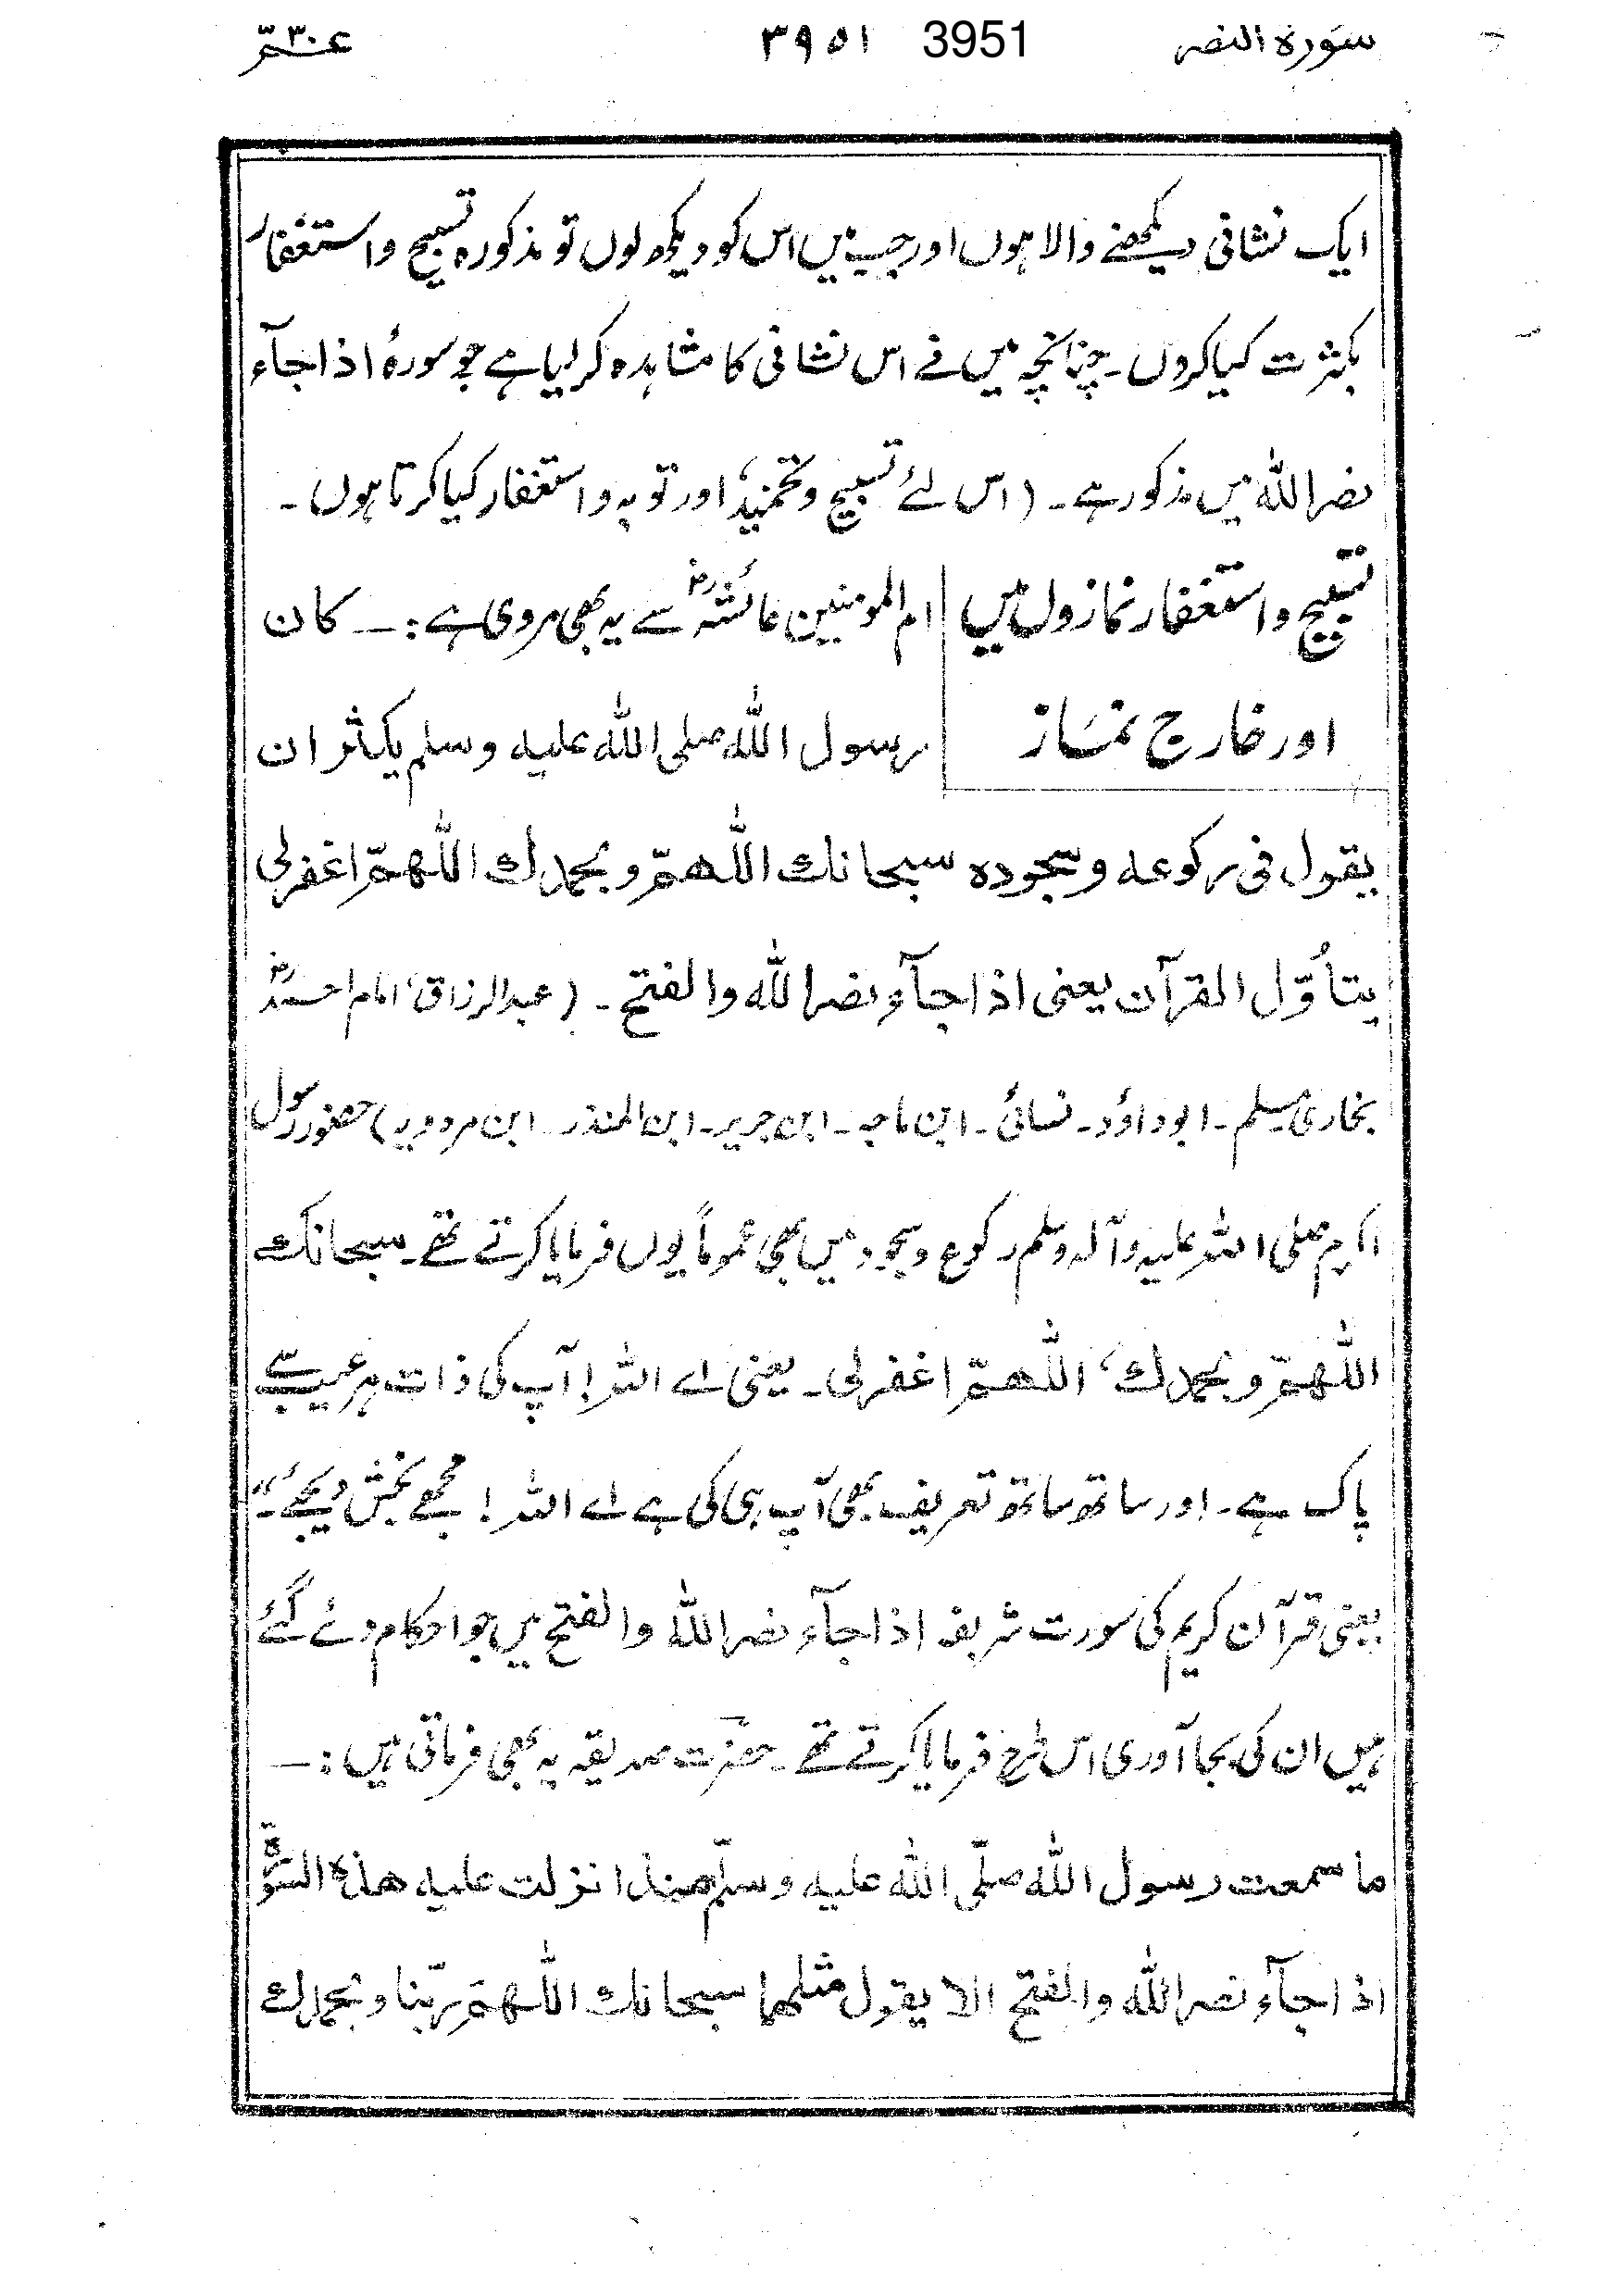 سورة النصر 3951 ۳۹۵۱ عم ۳۰
ایک نشانی دیکھنے والا ہوں اور جب میں اس کو دیکھ لوں تو مذکورہ تسبیح و استغفار
بکثرت کیا کروں۔ چنانچہ میں نے اس نشانی کا مشاہدہ کر لیا ہے جو سورۂ اذا جآء
نصر اللہ میں مذکور ہے۔ (اس لئے تسبیح و تحمید، اور توبہ و استغفار کیا کرتا ہوں۔
تسبیح و استغفار نمازوں میں
اور خارج نماز
ام المومنین عائشہؓ سے یہ بھی مروی ہے:۔ کان
رسول اللہ صلی اللہ علیہ وسلم یکثر ان
یقول فی رکوعہ وسجودہ سبحانك اللھمّ وبحمدك اللھمّ اغفرلی
یتأوّل القرآن یعنی اذا جآء نصر اللہ والفتح۔ (عبدالرزاق، امام احمدؓ
بخاری مسلم۔ ابوداؤد۔ نسائی۔ ابن ماجہ۔ ابن جریر۔ ابن المنذر۔ ابن مردویہ) حضور رسول
اکرم صلی اللہ علیہ وآلہ وسلم رکوع وسجود میں بھی عموماً یوں فرمایا کرتے تھے۔ سبحانك
اللھمّ وبحمدك، اللھمّ اغفرلی۔ یعنی اے اللہ! آپ کی ذات ہر عیب سے
پاک ہے۔ اور ساتھ ساتھ تعریف بھی آپ ہی کی ہے اے اللہ! مجھے بخش دیجئے۔"
یعنی قرآن کریم کی سورت شریفہ اذا جآء نصر اللہ والفتح میں جو احکام دئے گئے
ہیں ان کی بجا آوری اس طرح فرمایا کرتے تھے۔ حضرت صدیقہ یہ بھی فرماتی ہیں:۔
ما سمعت رسول اللہ صلّی اللہ علیہ وسلّم منذ انزلت علیہ ھذہ السّورة
اذا جآء نصر اللہ والفتح الا یقول مثلھما سبحانك اللھمّ ربّنا وبحمدك